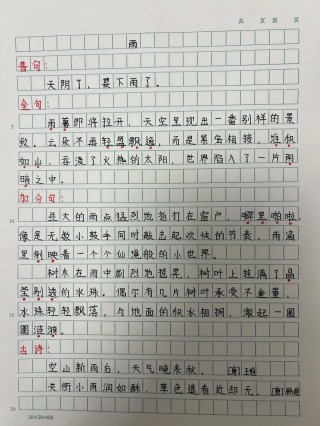 共 页 第 页
雨
普句:
天阴了，要下雨了。
金句:
雨幕即将拉开，天空呈现出一番别样的景
致。云朵不再轻盈飘逸，而是紧密相接，堆积
如山，吞没了火热的太阳，世界陷入了一片阴
暗之中。
加分句:
豆大的雨点猛烈地拍打在窗户，噼里啪啦，
像是无数小鼓手同时敲击起欢快的节奏，雨滴
里倒映着一个个仙境般的小世界。
树木在雨中剧烈地摇晃，树叶上挂满了晶
莹剔透的水珠。偶尔有几片树叶承受不住重量，
水珠轻轻飘落，与地面的积水相拥，激起一圈
圈涟漪。
古诗:
空山新雨后，天气晚来秋。 [唐]王维
天街小雨润如酥，草色遥看近却无。[唐]韩愈
20×20=400